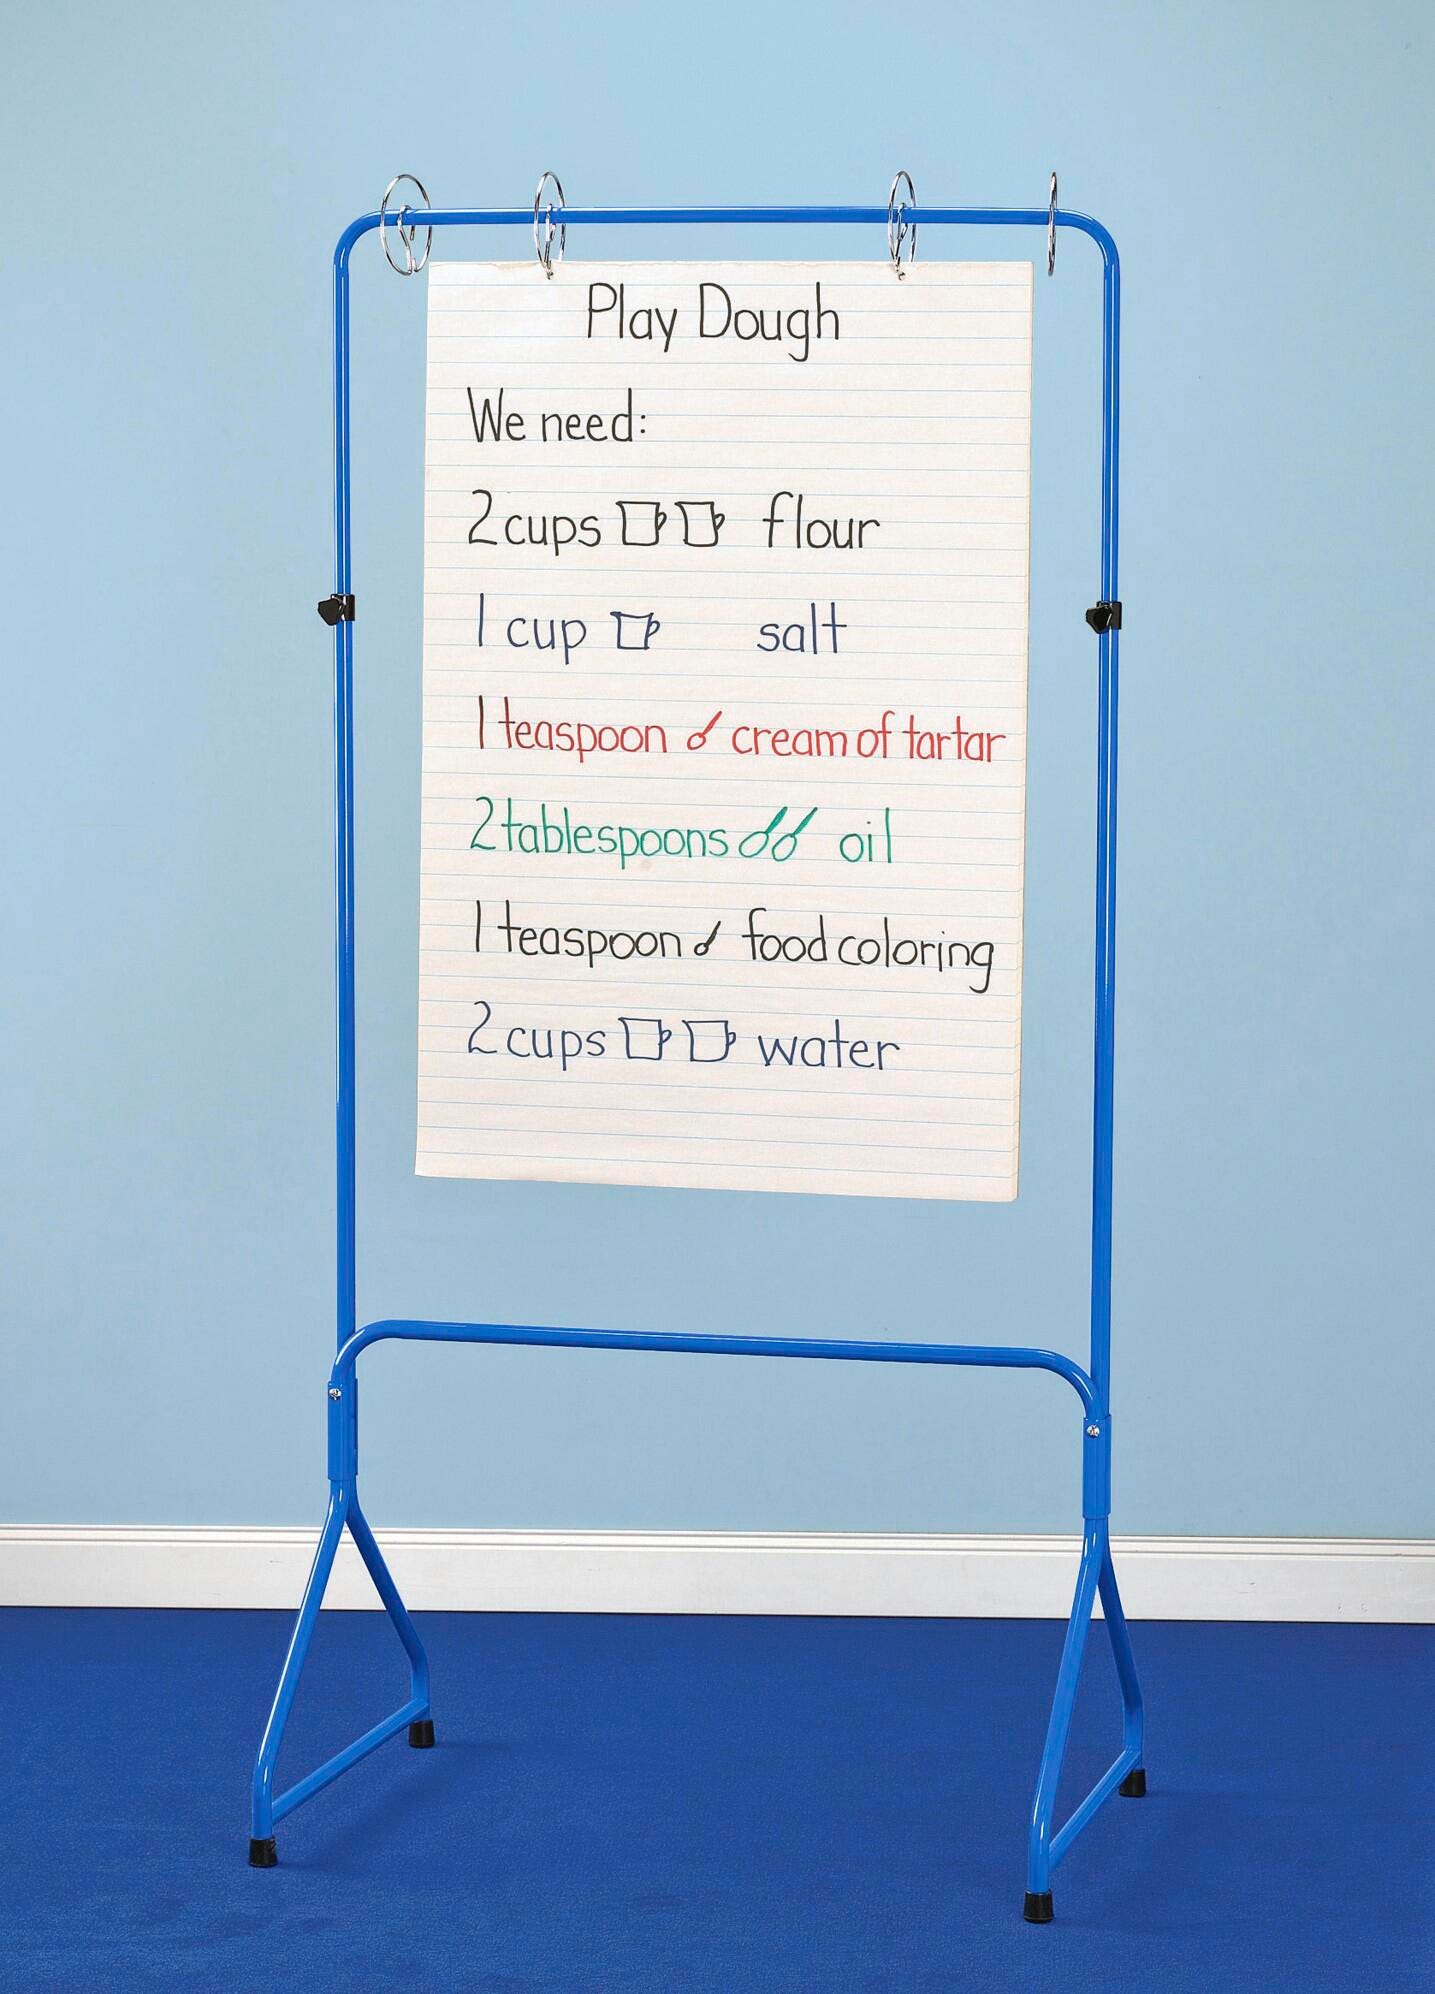 Play Dough
We need:
2 cups flour
1 cup salt
1 teaspoon cream of tartar
2 tablespoons oil
1 teaspoon food coloring
2 cups water